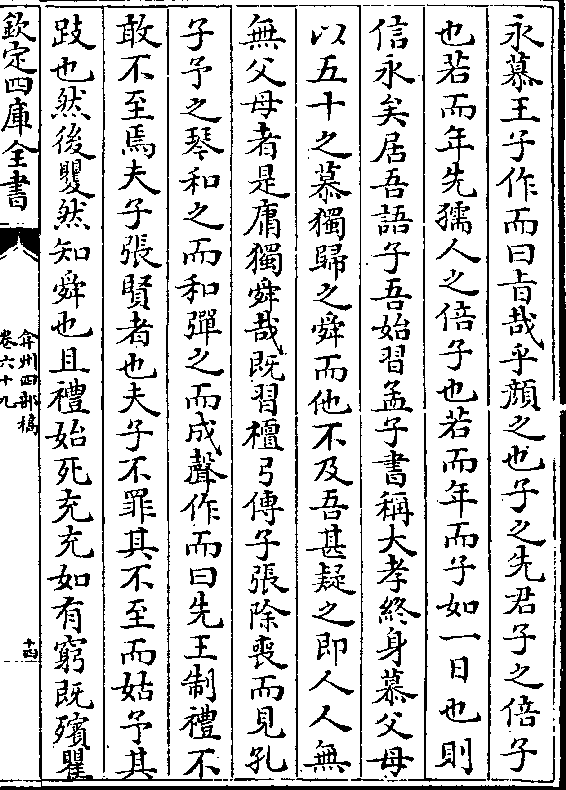 永慕王子作而曰旨哉乎顔之也子之先君子之倍子
也若而年先孺人之倍子也若而年而子如一日也則
信永矣居吾語子吾始習孟子書稱大孝終身慕父母
以五十之慕獨歸之舜而他不及吾甚疑之即人人無
無父母者是庸獨舜哉既習檀弓傳子張除喪而見孔
子予之琴和之而和彈之而成聲作而曰先王制禮不
敢不至焉夫子張賢者也夫子不罪其不至而姑予其
跂也然後瞿然知舜也且禮始死充充如有窮既殯瞿
欽定四庫全書
弇州四部稿
卷六十九
十四